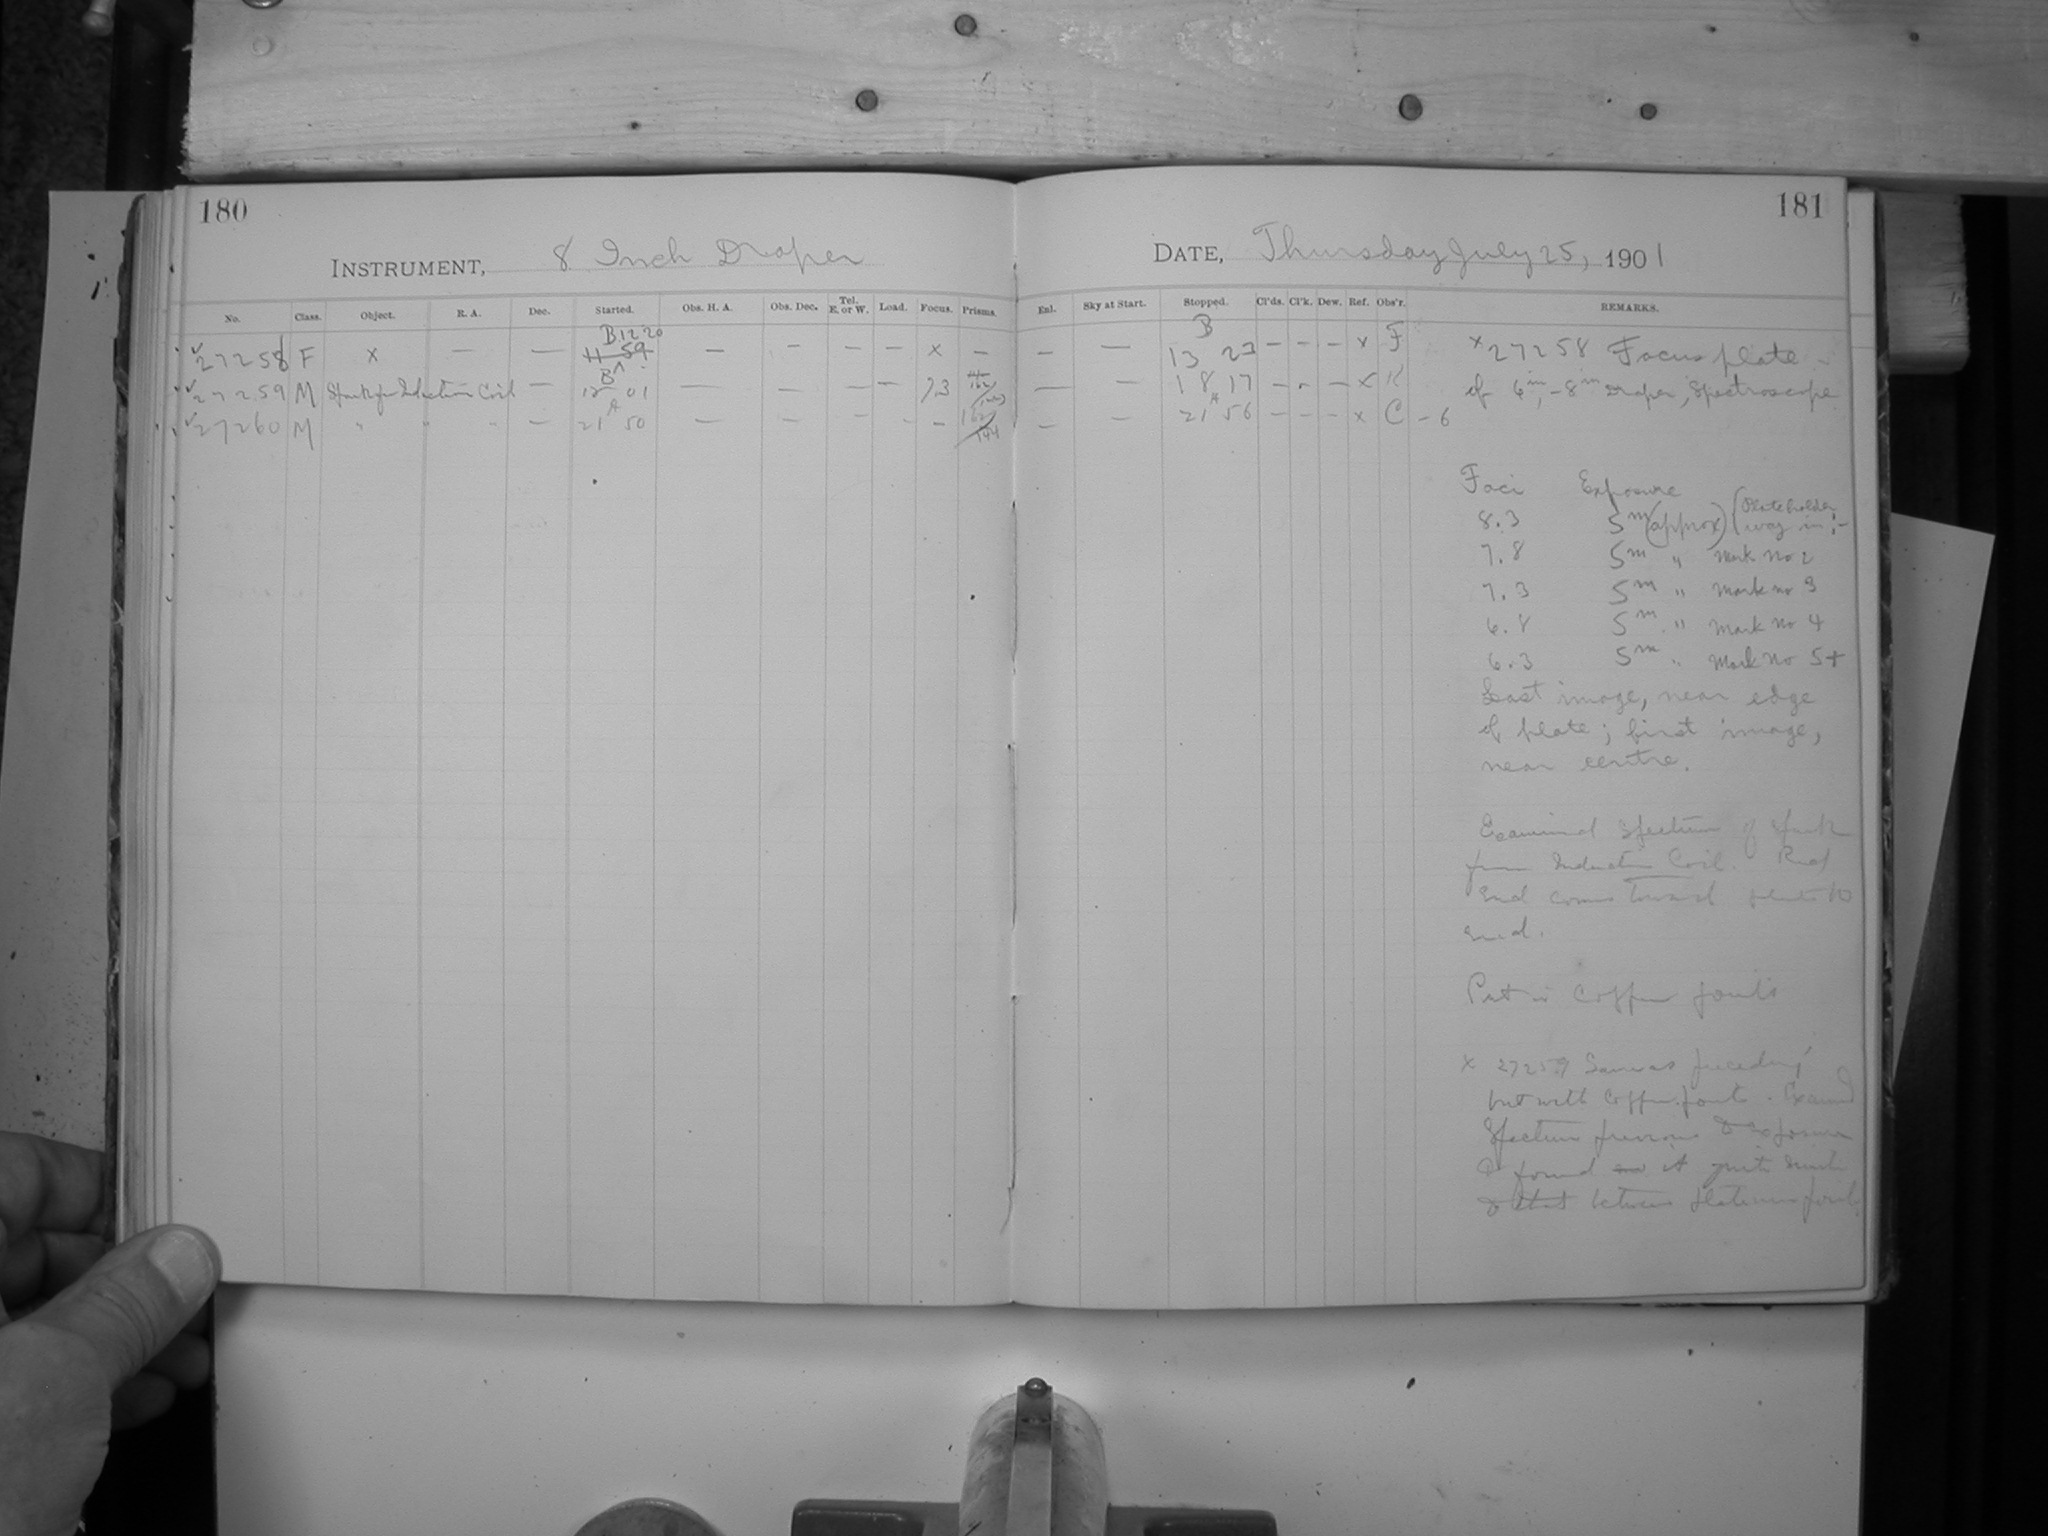 180
181
INSTRUMENT, 8 Inch Draper
DATE, Thursday July 25, 1901
No. Class. Object. R. A. Dec. Started. Obs. H. A. Obs. Dec. Tel. E. or W. Load. Focus. Prisms. Enl. Sky at Start. Stopped. Cl'ds. Cl'k. Dew. Ref. Obs'r. REMARKS.
B 12 20 B
27258 F x — — 11 59 — — — — x — — — 13 23 — — — x F
27259 M Spark from Induction Coil — B 01 — — — — 7.3 — — 18 17 — - — x K
27260 M " " " — A 21 50 — — - — — — A 21 56 — — — x C - 6
x 27258 Focus plate -
of 6 in, - 8 in Draper, Spectroscope
Foci Exposure
8.3 5m (approx) (Plateholder way in; -
7.8 5m " Mark No 2
7.3 5m " Mark no 3
6.8 5m " Mark No 4
6.3 5m " Mark No 5+
Last image, near edge
of plate; first image,
near centre.
Examined Spectrum of Spark
from Induction Coil. Red
End comes toward
End.
Put in Copper points
x 27259 Same as preceding
but with Copper points. Examined
Spectrum previous to exposure
& found it quite similar
to that between platinum points